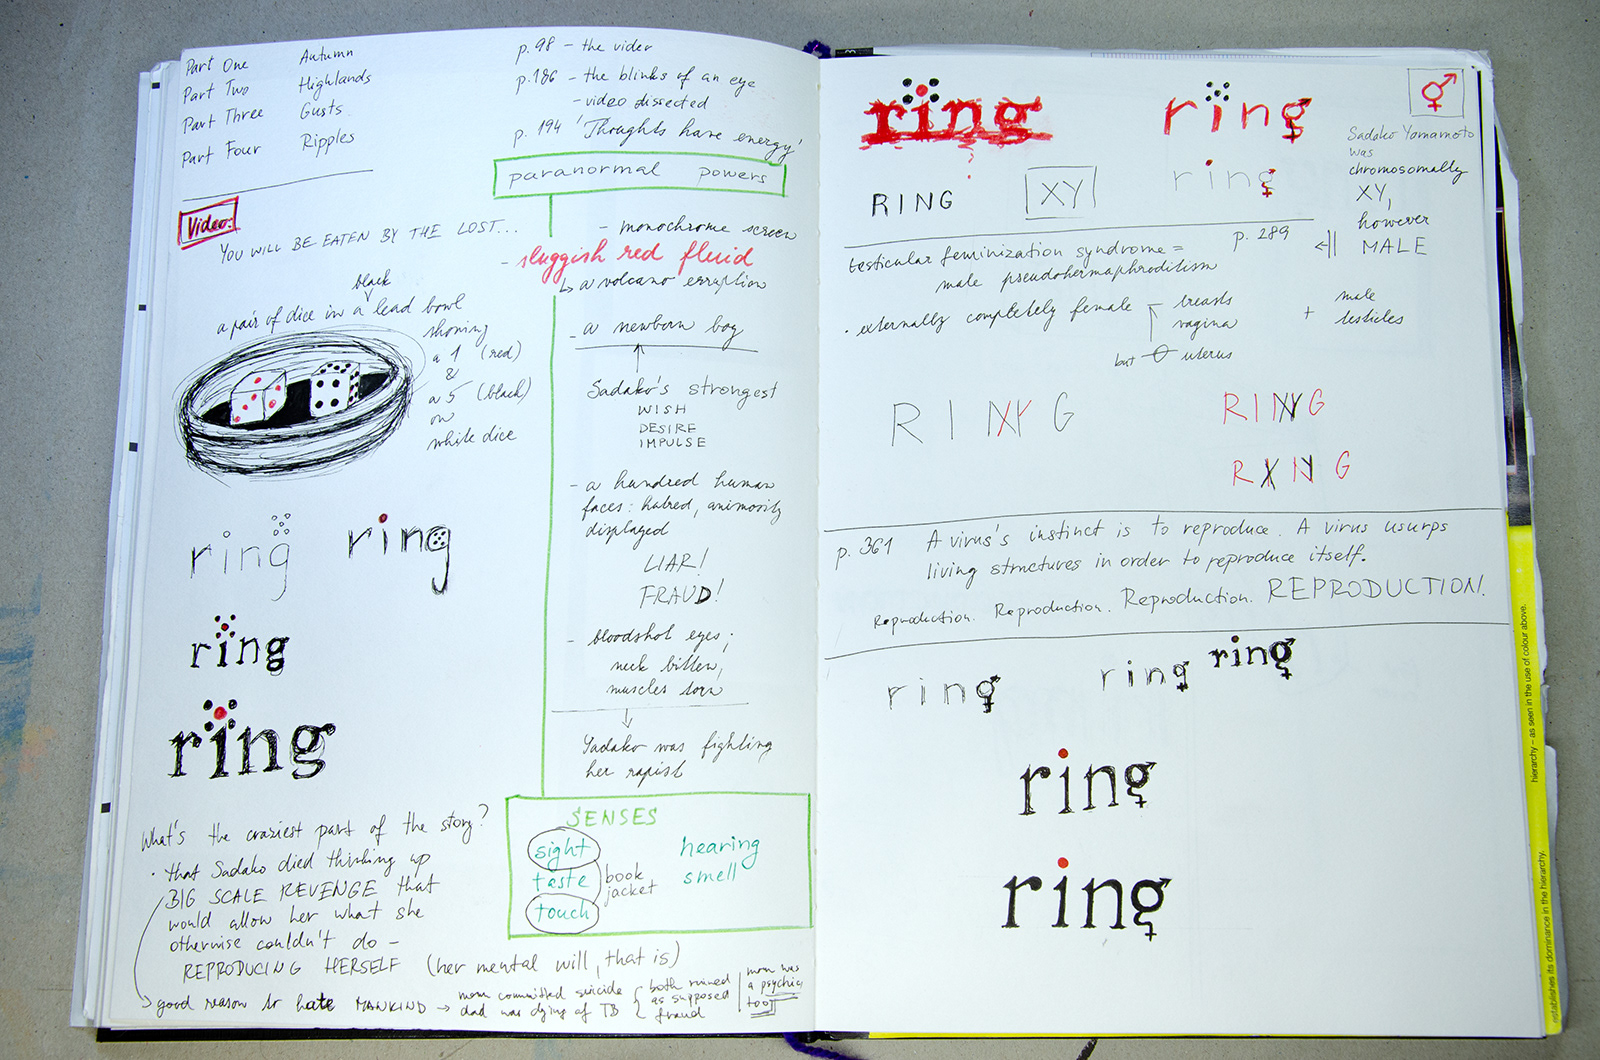 Part One Autumn
Part Two Highlands
Part Three Gusts
Part Four Ripples
p. 98 – the video
p. 186 – the blinks of an eye
– video dissected
p. 194 'Thoughts have energy'
paranormal powers
Video:
YOU WILL BE EATEN BY THE LOST...
black
a pair of dice in a lead bowl
showing
a 1 (red)
&
a 5 (black)
on
white dice
ring
ring
ring
ring
What's the craziest part of the story?
· that Sadako died thinking up
BIG SCALE REVENGE that
would allow her what she
otherwise couldn't do –
REPRODUCING HERSELF (her mental will, that is)
good reason to hate MANKIND → mom committed suicide
dad was dying of TB
both ruined
as supposed
fraud
mom was
a psychic
too
– monochrome screen
– sluggish red fluid
↳ a volcano erruption
– a newborn boy
Sadako's strongest
WISH
DESIRE
IMPULSE
– a hundred human
faces: hatred, animosity
displayed
LIAR!
FRAUD!
– bloodshot eyes;
neck bitten,
muscles torn
Sadako was fighting
her rapist
SENSES
sight
taste
touch
book
jacket
hearing
smell
ring
ring
ring
RING
XY
Sadako Yamamoto
was
chromosomally
XY,
however
MALE
p. 289
testicular feminization syndrome =
male pseudohermaphroditism
· externally completely female
breasts
vagina
but uterus
+ male
testicles
RINXYG
RINXYG
RXNYG
p. 361 A virus's instinct is to reproduce. A virus usurps
living structures in order to reproduce itself.
Reproduction. Reproduction. Reproduction. REPRODUCTION.
ring
ring
ring
ring
ring
hierarchy – as seen in the use of colour above.
establishes its dominance in the hierarchy.